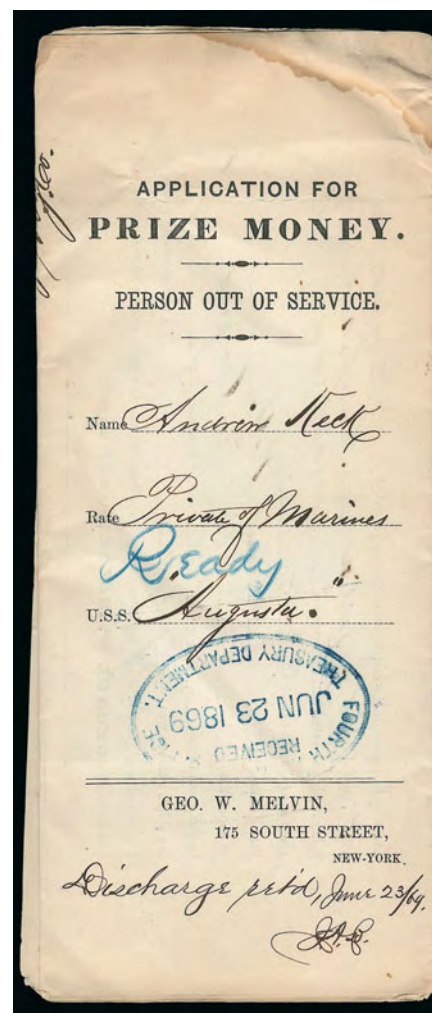 APPLICATION FOR
PRIZE MONEY.
PERSON OUT OF SERVICE.
Name Andrew Keck
Rate Private of Marines
Ready
U.S.S. "Augusta."
FOURTH
TREASURY DEPARTMENT.
JUN 23 1869
RECEIVED
GEO. W. MELVIN,
175 SOUTH STREET,
NEW-YORK.
Discharge ret'd, June 23/69.